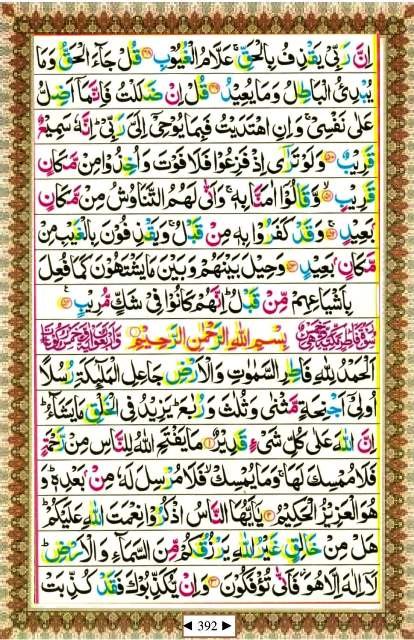 اِنَّ رَبِّیْ یَقْذِفُ بِالْحَقِّ ۚ عَلَّامُ الْغُیُوْبِ ﴿۴۸﴾ قُلْ جَآءَ الْحَقُّ وَمَا
یُبْدِئُ الْبَاطِلُ وَمَا یُعِیْدُ ﴿۴۹﴾ قُلْ اِنْ ضَلَلْتُ فَاِنَّمَاۤ اَضِلُّ
عَلٰی نَفْسِیْ ۚ وَاِنِ اهْتَدَیْتُ فَبِمَا یُوْحِیْۤ اِلَیَّ رَبِّیْ ؕ اِنَّهٗ سَمِیْعٌ
قَرِیْبٌ ﴿۵۰﴾ وَلَوْ تَرٰۤی اِذْ فَزِعُوْا فَلَا فَوْتَ وَاُخِذُوْا مِنْ مَّكَانٍ
قَرِیْبٍ ﴿۵۱﴾ وَّقَالُوْۤا اٰمَنَّا بِهٖ ۚ وَاَنّٰی لَهُمُ التَّنَاوُشُ مِنْ مَّكَانٍ
بَعِیْدٍ ﴿۵۲﴾ وَّقَدْ كَفَرُوْا بِهٖ مِنْ قَبْلُ ۚ وَیَقْذِفُوْنَ بِالْغَیْبِ مِنْ
مَّكَانٍ بَعِیْدٍ ﴿۵۳﴾ وَحِیْلَ بَیْنَهُمْ وَبَیْنَ مَا یَشْتَهُوْنَ كَمَا فُعِلَ
بِاَشْیَاعِهِمْ مِّنْ قَبْلُ ؕ اِنَّهُمْ كَانُوْا فِیْ شَكٍّ مُّرِیْبٍ ﴿۵۴﴾
بِسْمِ اللّٰهِ الرَّحْمٰنِ الرَّحِیْمِ
اَلْحَمْدُ لِلّٰهِ فَاطِرِ السَّمٰوٰتِ وَالْاَرْضِ جَاعِلِ الْمَلٰٓئِكَةِ رُسُلًا
اُولِیْۤ اَجْنِحَةٍ مَّثْنٰی وَثُلٰثَ وَرُبٰعَ ؕ یَزِیْدُ فِی الْخَلْقِ مَا یَشَآءُ ؕ
اِنَّ اللّٰهَ عَلٰی كُلِّ شَیْءٍ قَدِیْرٌ ﴿۱﴾ مَا یَفْتَحِ اللّٰهُ لِلنَّاسِ مِنْ رَّحْمَةٍ
فَلَا مُمْسِكَ لَهَا ۚ وَمَا یُمْسِكْ ۙ فَلَا مُرْسِلَ لَهٗ مِنْ بَعْدِهٖ ؕ وَ
هُوَ الْعَزِیْزُ الْحَكِیْمُ ﴿۲﴾ یٰۤاَیُّهَا النَّاسُ اذْكُرُوْا نِعْمَتَ اللّٰهِ عَلَیْكُمْ ؕ
هَلْ مِنْ خَالِقٍ غَیْرُ اللّٰهِ یَرْزُقُكُمْ مِّنَ السَّمَآءِ وَالْاَرْضِ ؕ
لَاۤ اِلٰهَ اِلَّا هُوَ ۖ فَاَنّٰی تُؤْفَكُوْنَ ﴿۳﴾ وَاِنْ یُّكَذِّبُوْكَ فَقَدْ كُذِّبَتْ
◄ 392 ►